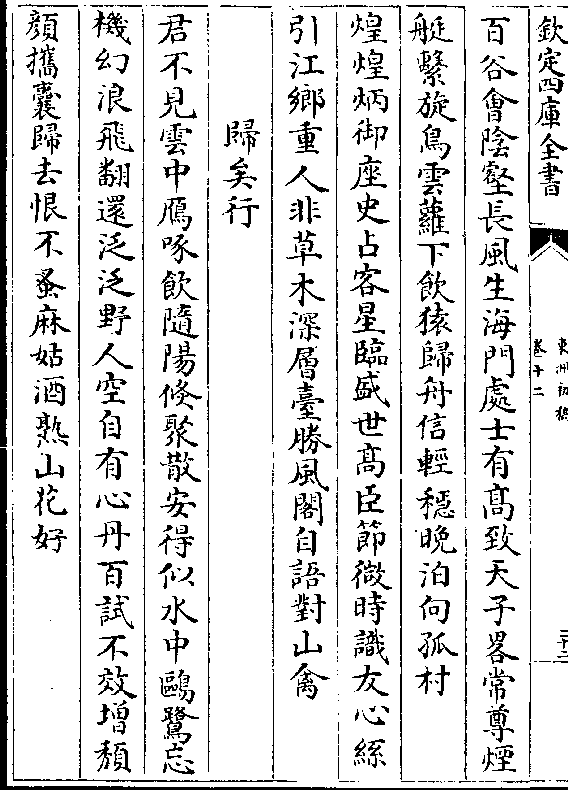 欽定四庫全書
東洲初稿
卷十二
百谷會陰壑長風生海門處士有髙致天子畧常尊煙
艇繫旋鳥雲蘿下飲猿歸舟信輕穩晚泊向孤村
煌煌炳御座史占客星臨盛世髙臣節微時識友心絲
引江鄉重人非草木深層臺勝風閣自語對山禽
歸矣行
君不見雲中鴈啄飲隨陽倏聚散安得似水中鷗鷺忘
機幻浪飛翻還泛泛野人空自有心丹百試不效增頳
顔攜囊歸去恨不蚤麻姑酒熟山花好